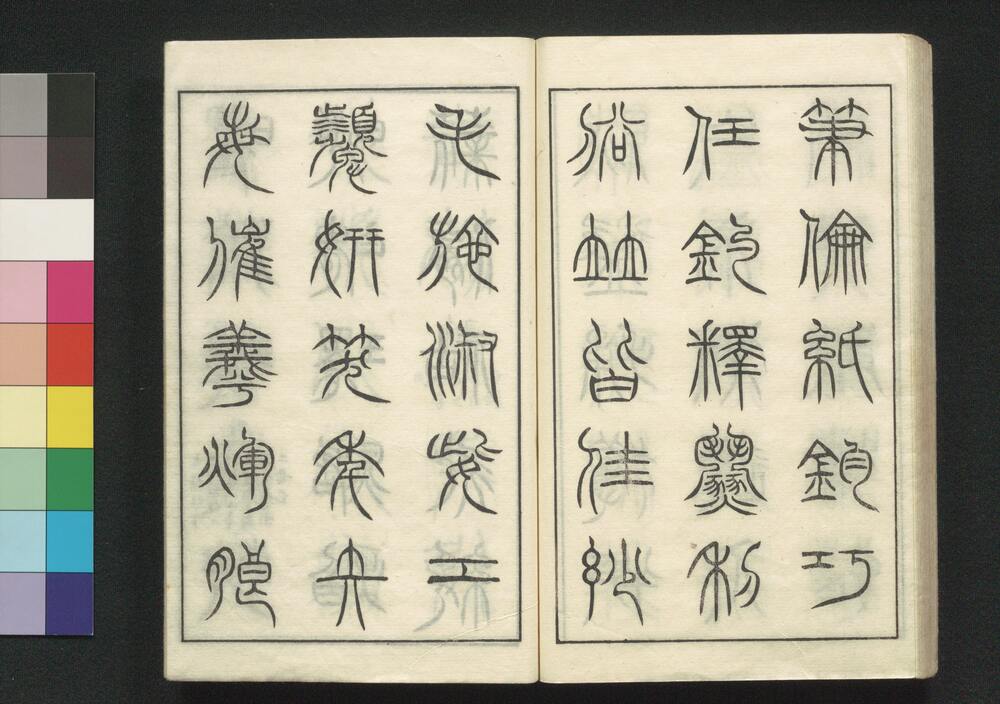 筆倫紙鈞巧
任釣釋紛利
俗竝皆佳紗
毛施淑姿工
顰妍笑年矢
每催羲煇朖